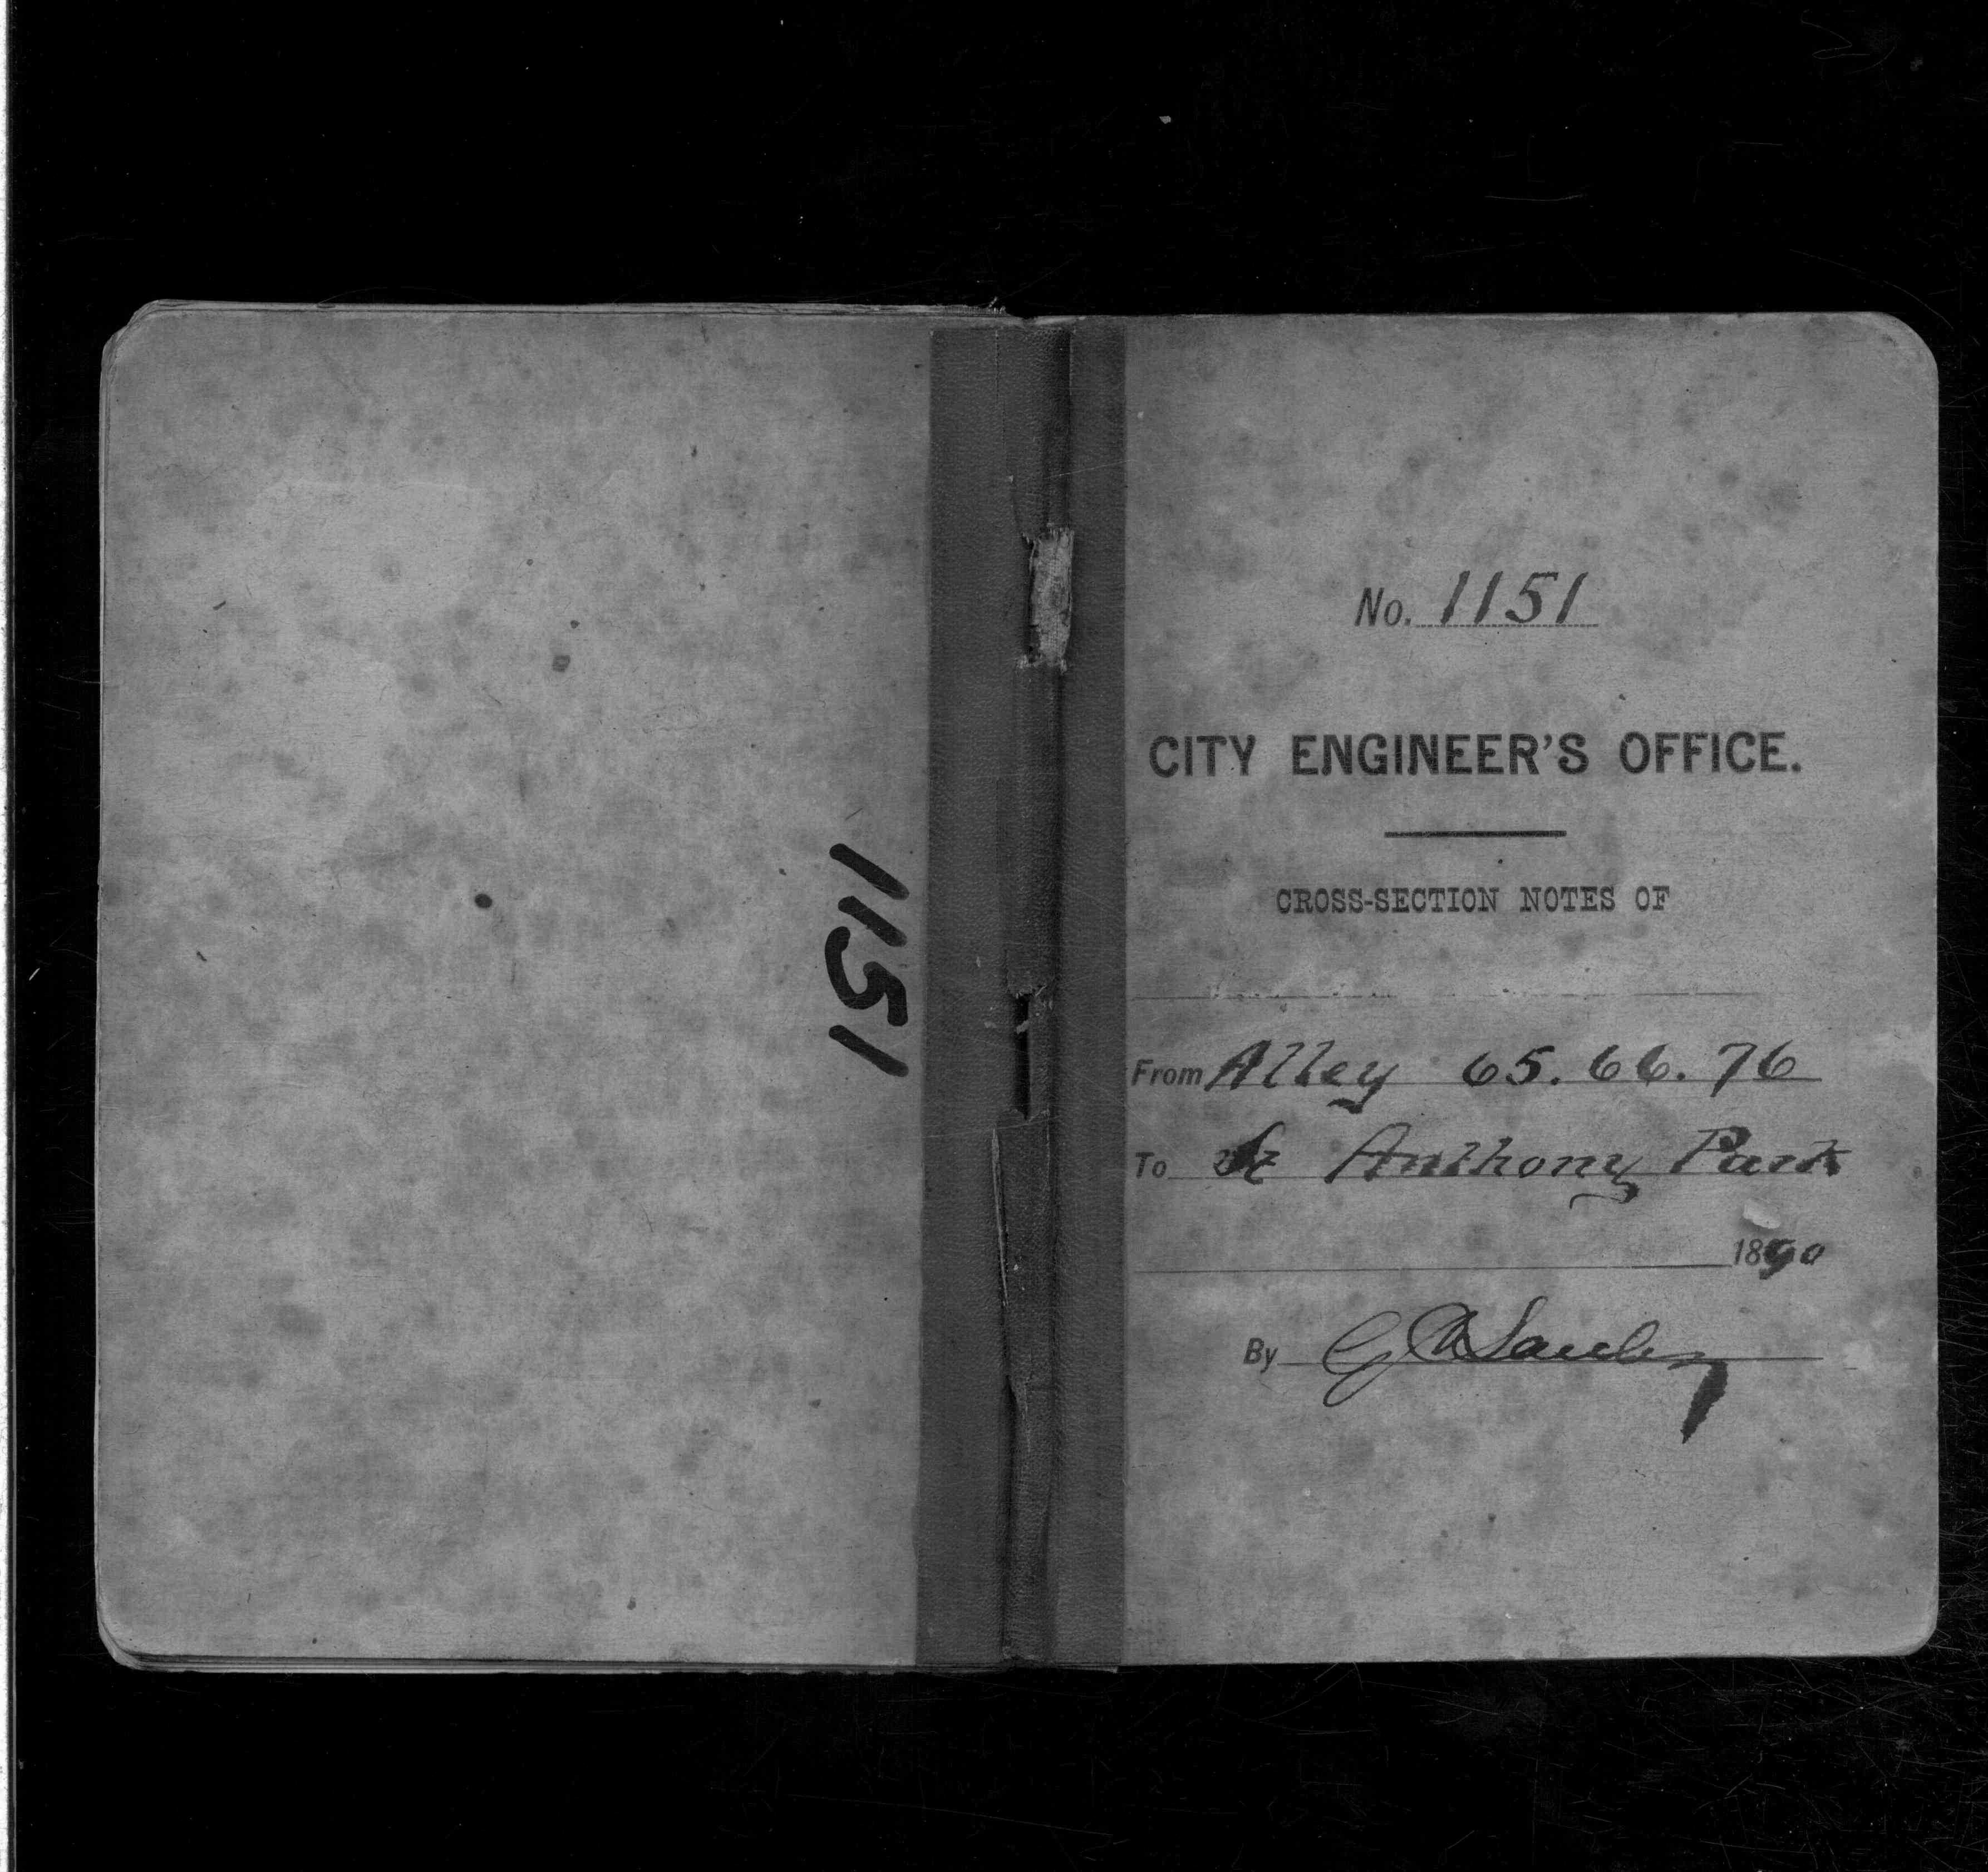 1151
No. 1151
CITY ENGINEER'S OFFICE.
CROSS-SECTION NOTES OF
From Alley 65. 66. 76
To St Anthony Park
1890
By G A